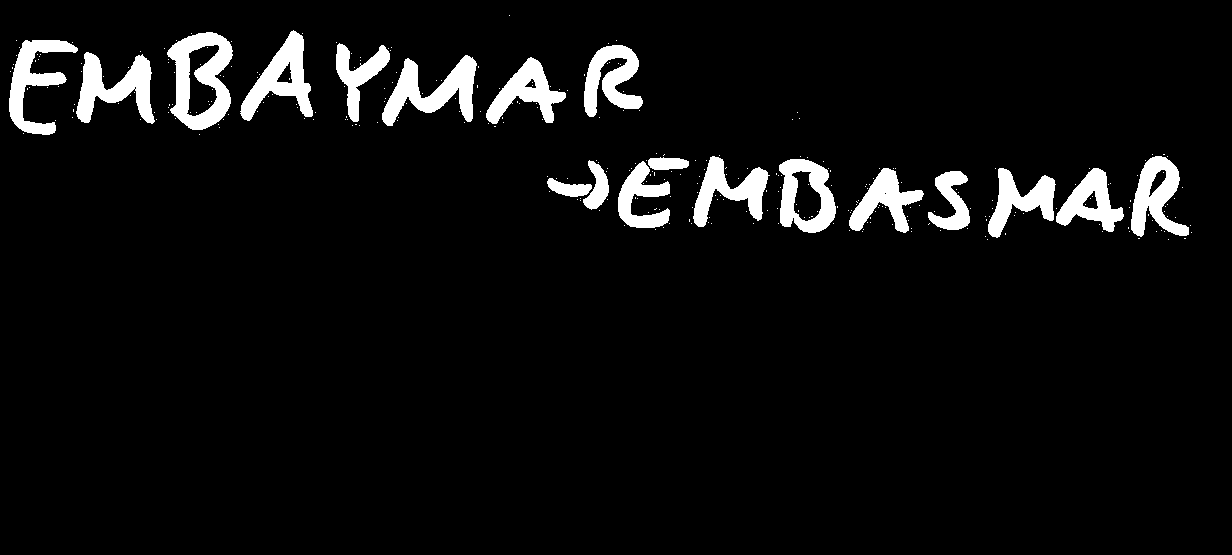 EMBAYMAR
→EMBASMAR